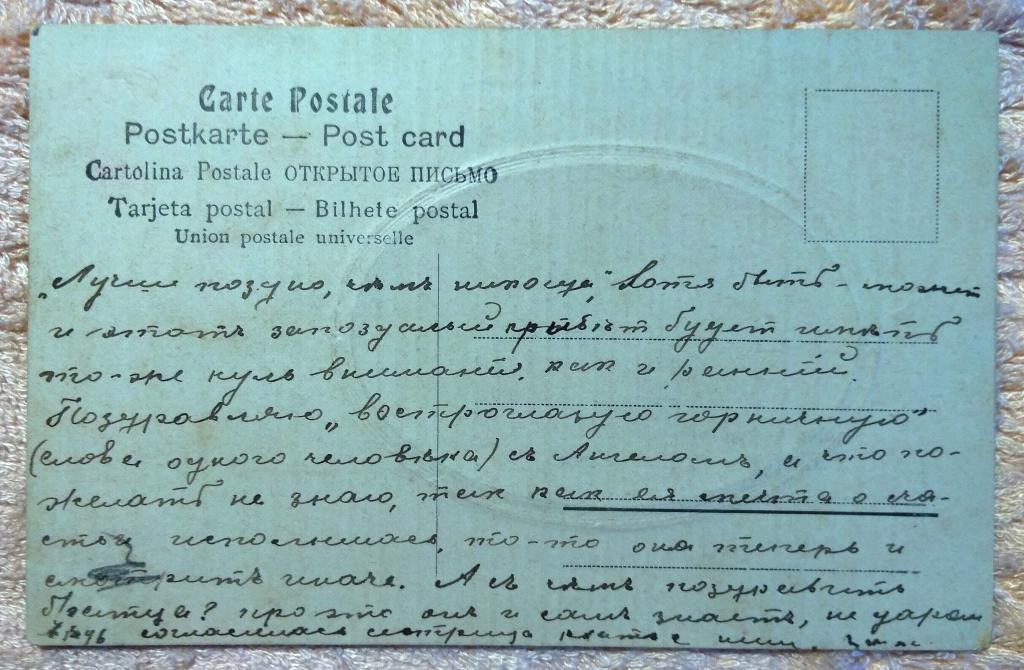 Carte Postale
Postkarte — Post card
Cartolina Postale ОТКРЫТОЕ ПИСЬМО
Tarjeta postal — Bilhete postal
Union postale universelle
„Лучше поздно, чѣмъ никогда", хотя быть-может
и этотъ запоздалый привѣт будет имѣть
то-же нуль вниманія, как и ранній.
Поздравляю „востроглазую горничную"
(слова одного человѣка) с Ангеломъ, а что по-
желать не знаю, так как ея мечта о сча-
стьи исполнилась, то-то она теперь и
смотритъ иначе. А съ чѣмъ поздравить
про это он и самъ знаетъ, не даром
согласилась сестрица ѣхать с ним.